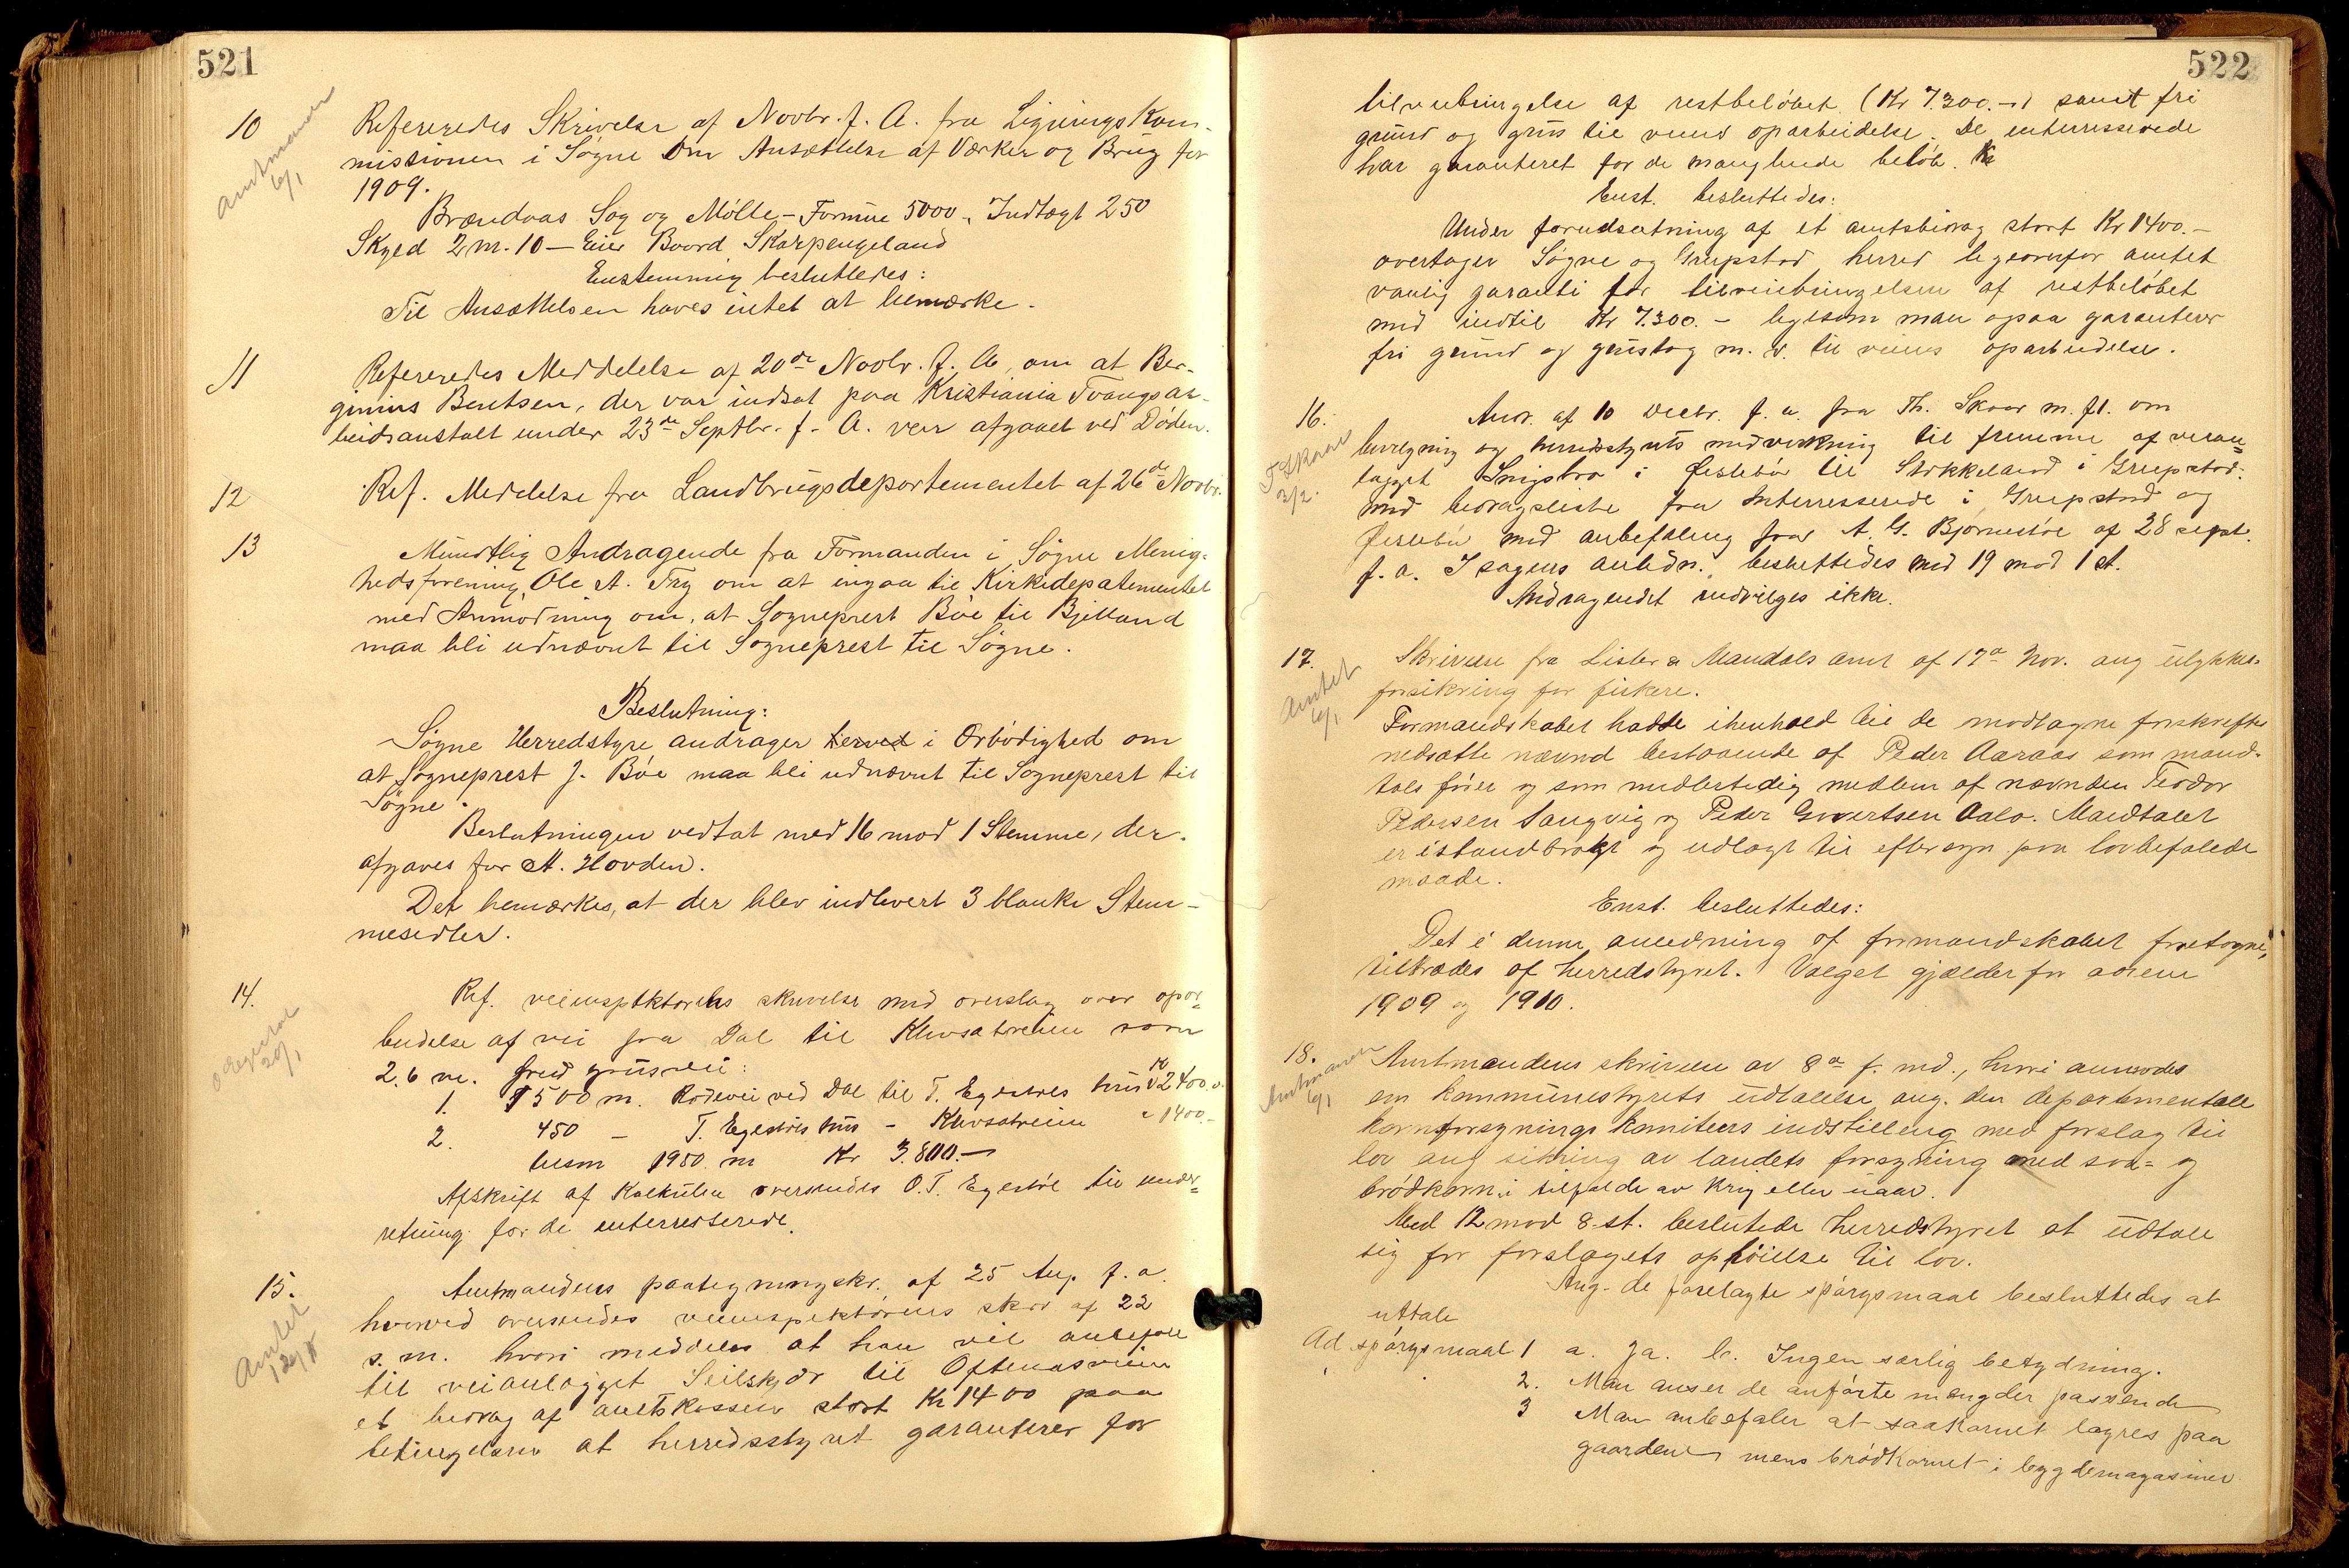 521
10
Amtmanen
6/1
Refereredes Skrivelse af Novbr. f. A. fra Ligningskom-
missionen i Søgne om Ansættelse af Værker og Brug for
1909.
Brændaas Sag og Mølle - Formue 5000, Indtægt 250
Skyld 2 m. 10 - Eier Baard Skarpengeland
Enstemmig besluttedes:
Til Ansættelsen haves intet at bemærke.
11
Refereredes Meddelelse af 20de Novbr. f. A., om at Ber-
ginius Bentsen, der var indsat paa Kristiania Tvangsar-
beidsanstalt under 23de Septbr. f. A. var afgaaet ved Døden.
12
Ref. Meddelelse fra Landbrugsdepartementet af 26de Novbr.
13
Mundtlig Andragende fra Formanden i Søgne Menig-
hedsforening, Ole A. Try om at ingaa til Kirkedepatementet
med Anmodning om, at Sogneprest Bøe til Bjelland
maa bli udnævnt til Sogneprest til Søgne.
Beslutning:
Søgne Herredstyre andrager herved i Ærbødighed om
at Sogneprest J. Bøe maa bli udnævnt til Sogneprest til
Søgne.
Beslutningen vedtat med 16 mod 1 Stemme, der
afgaves for A. Hovden.
Det bemærkes, at der blev indlevert 3 blanke Stem-
mesedler.
14.
20/1
Ref. veiinspktørens skrivelse med overslag over opar=
beidelse af vei fra Dal til Klevsatveien som
2.6 m. bred grusvei:
1. 1500 m. Rodevei ved Dal til T. Egestøls hus Kr 2400.-
2. 450 - T. Egestøls hus - Klevsatveien " 1400.-
tilsm 1950 m Kr 3.800.-
Afskrift af Kalkulen oversendes O. T. Egestøl til under=
retning for de interresserede.
15.
Amtet
12/1
Amtmandens paategningskr. af 25 Aug. f. a.
hvorved oversendes veiinspektørens skr. af 22
s. m. hvori meddeles at han vil anbefale
til veianlægget Seilskjær til Oftenæsveien
et bidrag af amtskassen stort Kr 1400 paa
betingelse at herredsstyret garanterer for
522
tilveiebringelse af restbeløbet (Kr 7.300.-) samt fri
grund og grus til veiens oparbeidelse. De interresserede
har garanteret for de manglende beløb. Kr
Enst. besluttedes:
Under forudsætning af et amtsbidrag stort Kr 1400.-
overtager Søgne og Greipstad herred ligeoverfor amtet
vanlig garanti for tilveiebringelsen af restbeløbet
med indtil Kr 7.300.- ligesom man ogsaa garanterer
fri grund og grustag m. v. til veiens oparbeidelse.
16.
T Skaar
3/2.
Andr. af 10 Decbr. f. a. fra Th. Skaar m. fl. om
bevilgning og herredsstyrets medvirkning til fremme af veian=
lægget Snigsbro i Øislebø til Stokkeland i Greipstad.
med bidragsliste fra Interresserede i Greipstad og
Øislebø med anbefaling fra A. G. Bjørnestøl af 28 sept.
f. a. I sagens anledn. besluttedes med 19 mod 1 st.
Andragendet indvilges ikke.
17.
Amtet
6/1
Skrivelse fra Lister & Mandals amt af 17de Nov. ang ulykkes-
forsikring for fiskere.
Formandskabet hadde ihenhold til de modtagne forskrifter
nedsatte nævnd bestaaende af Peder Aaraas som mand-
talsfører og som midlertidig medlem af nævnden Teodor
Pedersen Langvig og Peder Govertsen Aalo. Mandtalet
er istandbrakt og udlagt til eftersyn paa lovbefalede
maade.
Enst. besluttedes:
Det i denne anledning af formandskabet foretagne,
tiltrædes af herredstyret. Valget gjælder for aarene
1909 og 1910.
18.
Amtmanden
6/1
Amtmandens skrivelse av 8de f. md., hvori anmodes
om kommunestyrets udtalelse ang. den departementale
kornforsynings komitees indstilling med forslag til
lov ang sikring av landets forsyning med saa= og
brødkorn i tilfælde av krig eller uaar.
Med 12 mod 8 st. beslutede herredstyret at udtale
sig for forslagets ophøielse til lov.
Ang. de forelagte spørgsmaal besluttedes at
uttale
Ad spørgsmaal 1 a. Ja. b. Ingen særlig betydning.
2. Man anser de anførte mængder passende
3 Man anbefaler at saakornet lagres paa
gaardene mens brødkornet i bygdemagasiner.